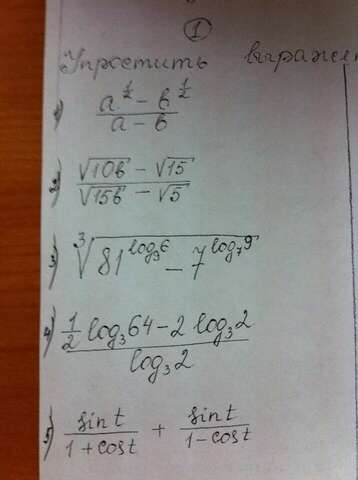 1
Упростить выражен
1) (a^{1/2} - b^{1/2})/(a - b)
2) (√10b - √15)/(√15b - √5)
3) ∛(81^{log_9 6} - 7^{log_7 9})
4) (1/2 log_3 64 - 2 log_3 2)/(log_3 2)
5) sin t/(1 + cos t) + sin t/(1 - cos t)